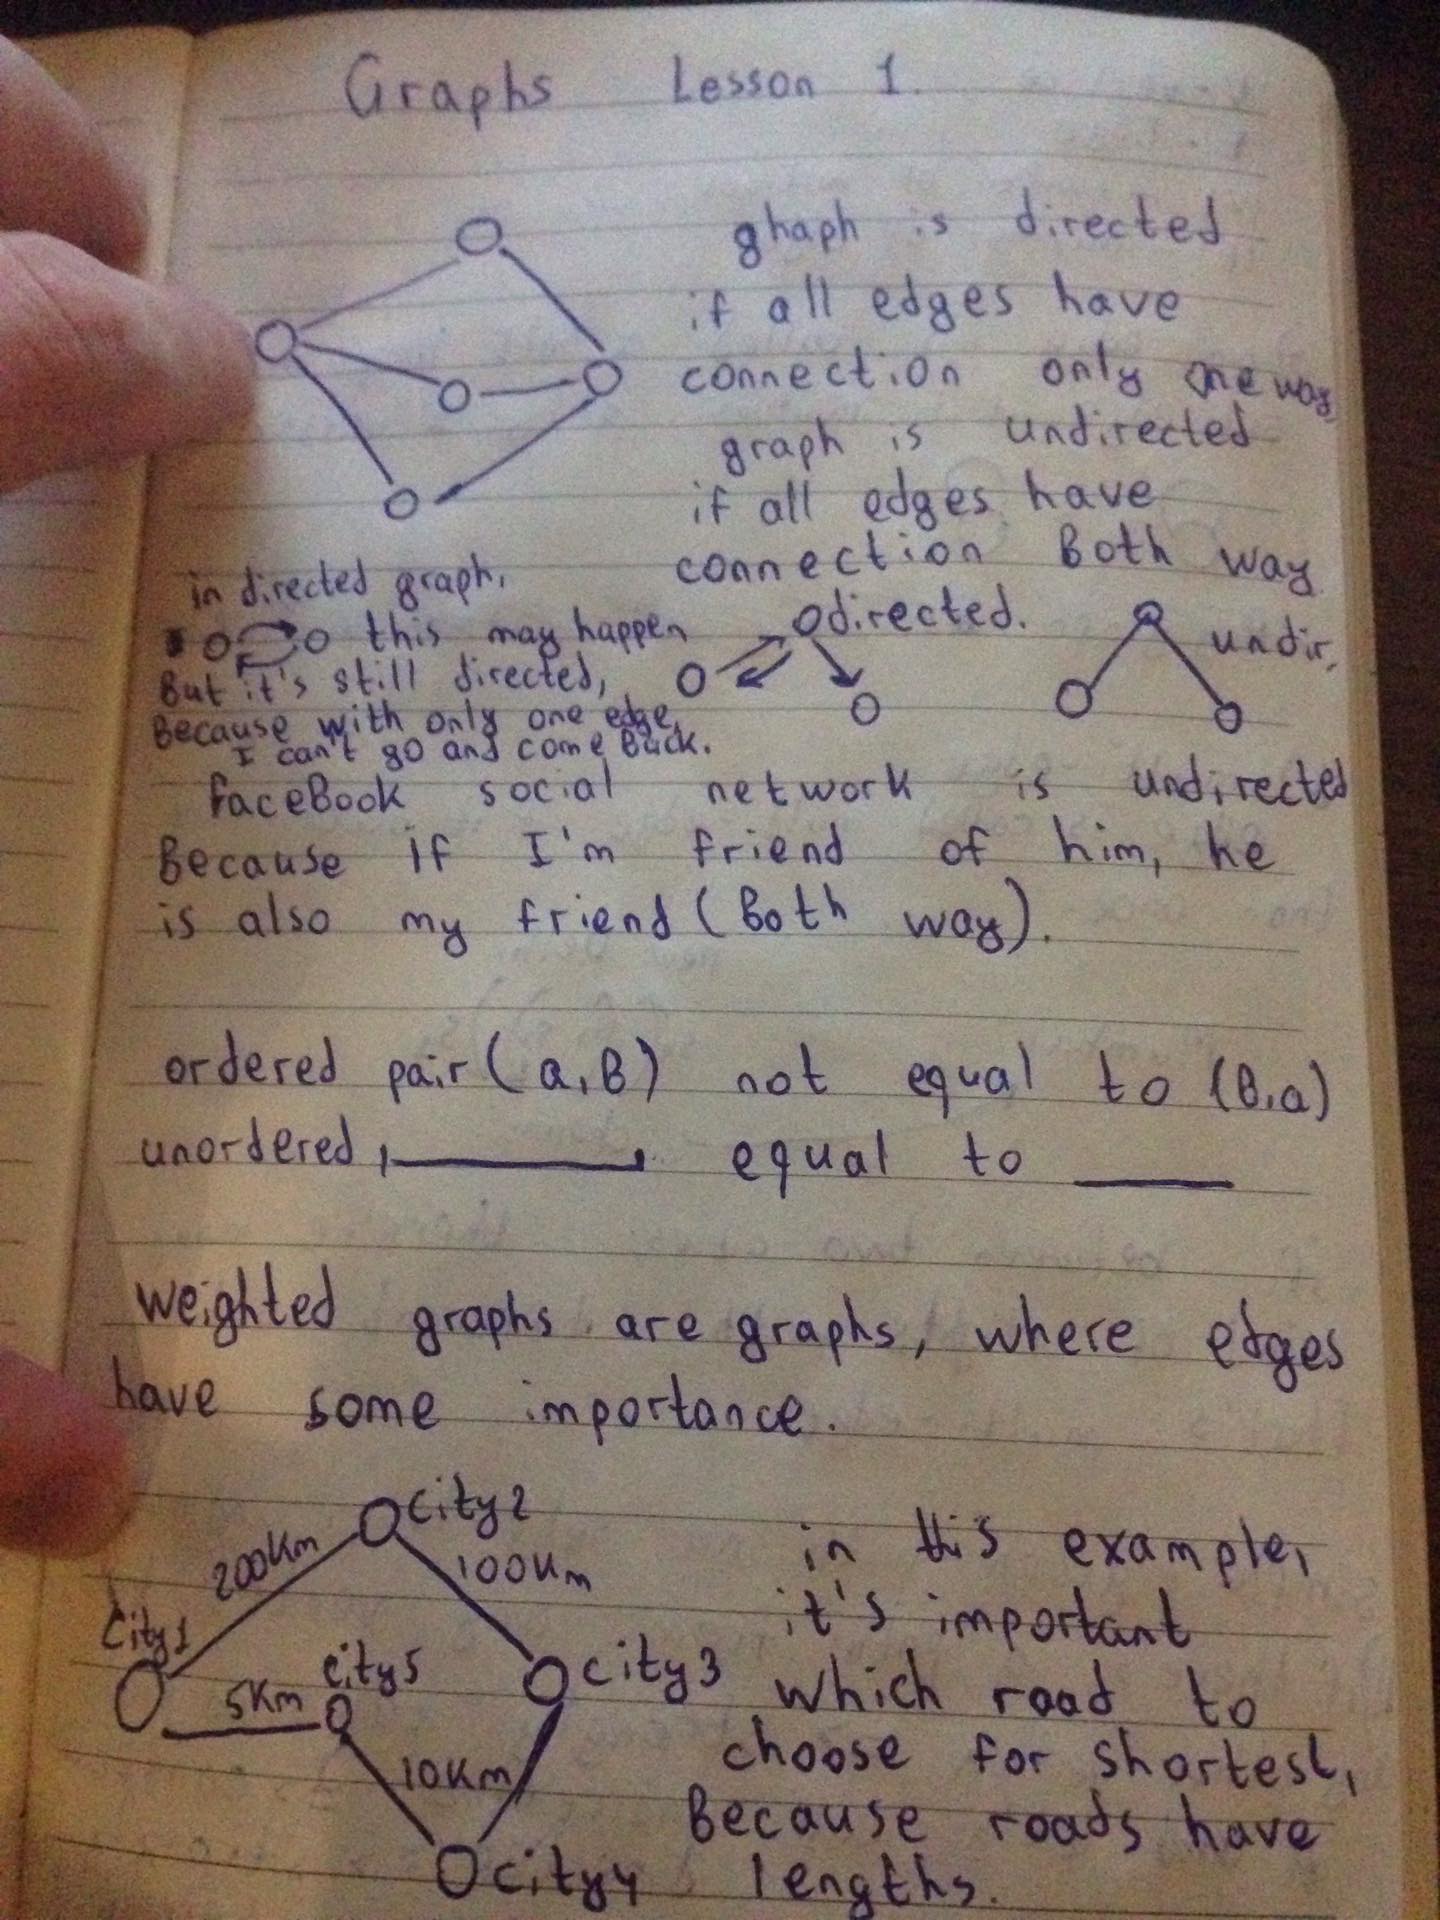 Graphs Lesson 1.
ghaph is directed
if all edges have
connection only one way
graph is undirected
if all edges have
connection Both way
in directed graph,
this may happen
But it's still directed,
Because with only one edge,
I can't go and come Back.
directed.
undir,
faceBook social network is undirected
Because if I'm friend of him, he
is also my friend (Both way).
ordered pair (a,B) not equal to (B,a)
unordered equal to
weighted graphs are graphs, where edges
have some importance.
City2
200Km
100Km
City1
City5
5Km
city3
10Km
city4
in this example,
it's important
which road to
choose for shortest,
Because roads have
lengths.